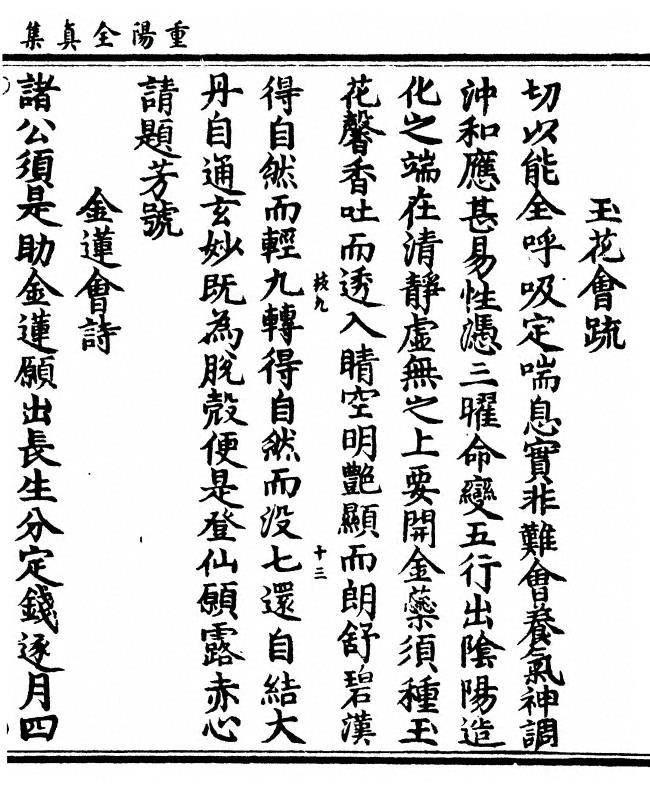 重陽全真集
玉花會䟽
切以能全呼吸定喘息實非難會養氣神調
沖和應甚易性憑三曜命變五行出陰陽造
化之端在清靜虛無之上要開金蘂須種玉
花馨香吐而透入晴空明艷顯而朗舒碧漢
枝九
十三
得自然而輕九轉得自然而没七還自結大
丹自通玄妙既為脫殼便是登仙願露赤心
請題芳號
金蓮會詩
諸公須是助金蓮願出長生分定錢逐月四